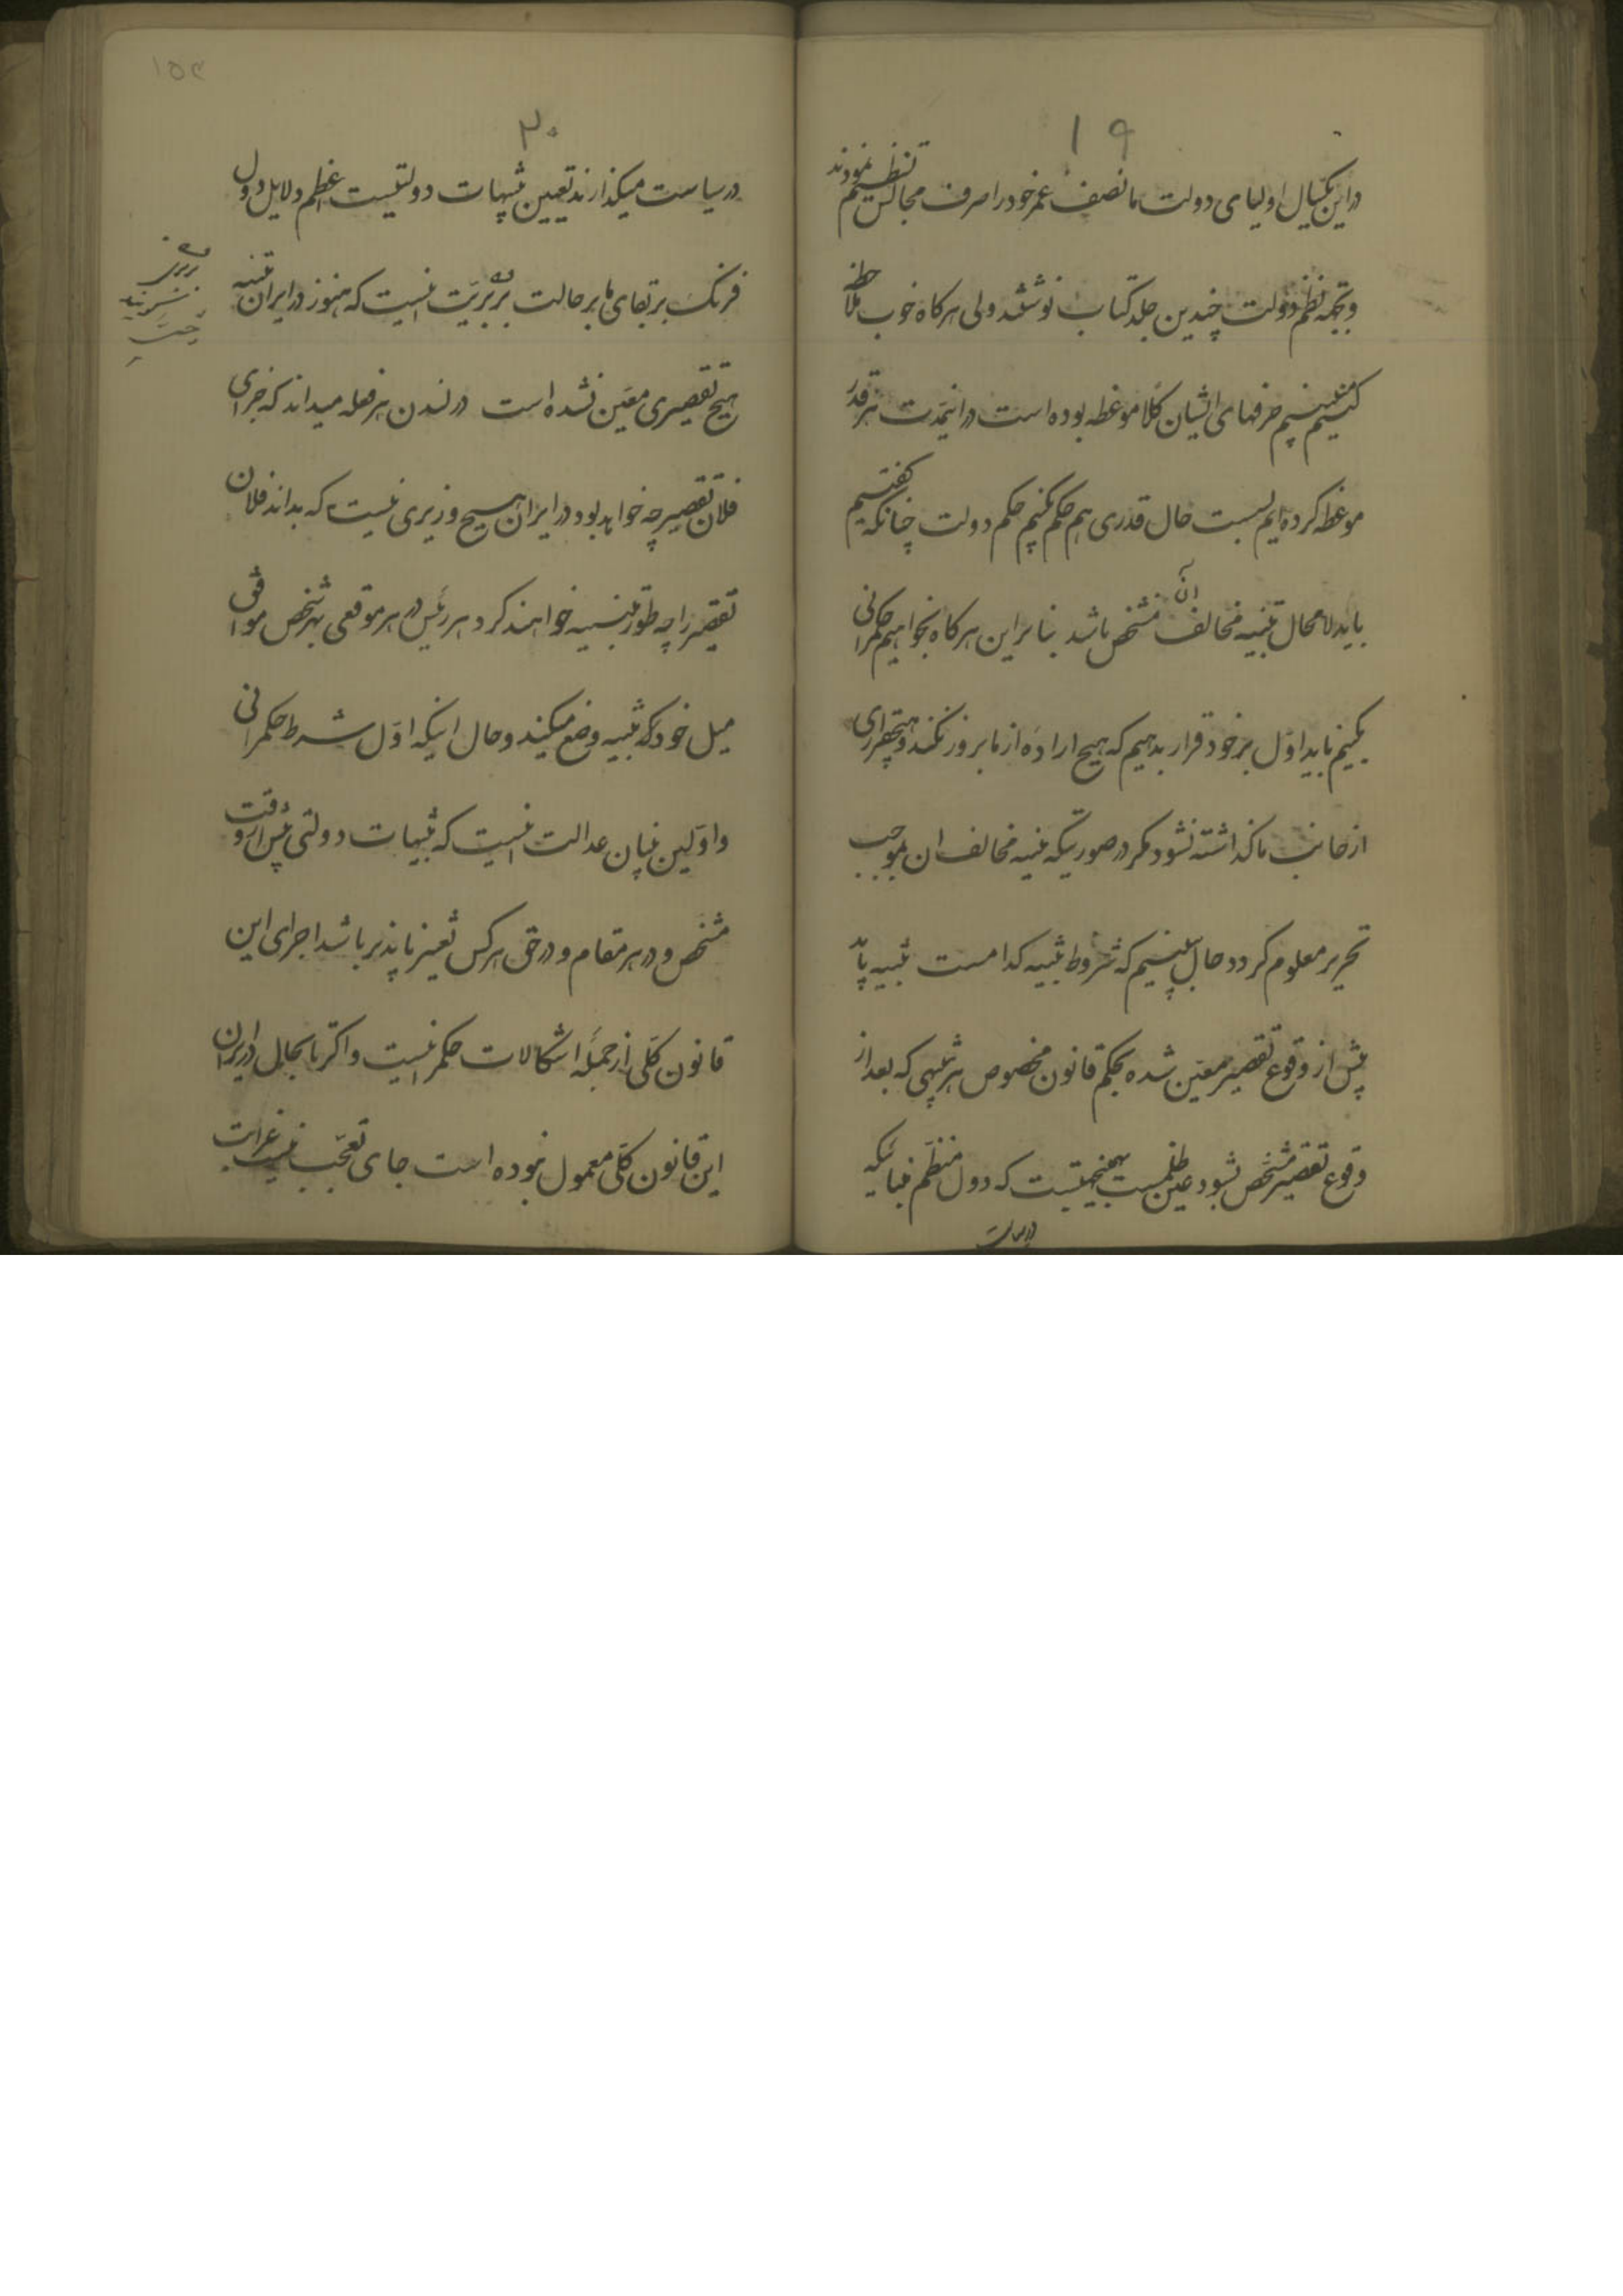 ۱۹
در این یکسال اولیای دولت ما نصف عمر خود را صرف مجالس تنظیم نمودند
و بجهة نظم دولت چندین جلد کتاب نوشتند ولی هرگاه خوب ملاحظه
کنیم میبینیم حرفهای ایشان کلا موعظه بوده است در اینمدت هر قدر
موعظه کرده‌ایم بس است حال قدری هم حکم کنیم حکم دولت چنانکه گفتیم
باید لامحال تنبیه مخالف آن مشخص باشد بنابراین هرگاه بخواهیم حکمرانی
بکنیم باید اول بر خود قرار بدهیم که هیچ اراده از ما بروز نکند و هیچ قراری
از جانب ما گذاشته نشود مگر در صورتیکه تنبیه مخالف ان بموجب
تحریر معلوم گردد حال ببینیم که شروط تنبیه کدامست تنبیه باید
پیش از وقوع تقصیر معین شده بحکم قانون مخصوص هر تنبیهی که بعد از
وقوع تقصیر مشخص بشود عین ظلمست بهمین جهتیست که دول منظم مبنائیکه
در سیاست
۱۵۴
۲۰
در سیاست میگذارند تعیین تنبیهات دولتیست اعظم دلایل دول
فرنگ بر بقای ما بر حالت بربریت اینست که هنوز در ایران تنبیه
هیچ تقصیری معین نشده است در لندن هر فعله میداند که جزای
فلان تقصیر چه خواهد بود در ایران هیچ وزیری نیست که بداند فلان
تقصیر را چه طور تنبیه خواهند کرد هر رئیس در هر موقعی بهر شخص موافق
میل خود یک تنبیه وضع میکند و حال اینکه اول شرط حکمرانی
و اولین بنیان عدالت اینست که تنبیهات دولتی پیش از وقت
مشخص و در هر مقام و در حق هر کس تغییر ناپذیر باشد اجرای این
قانون کلی از جمله اشکالات حکمرانیست و اگر تا بحال در ایران
این قانون کلی معمول نبوده است جای تعجب نیست غرابت